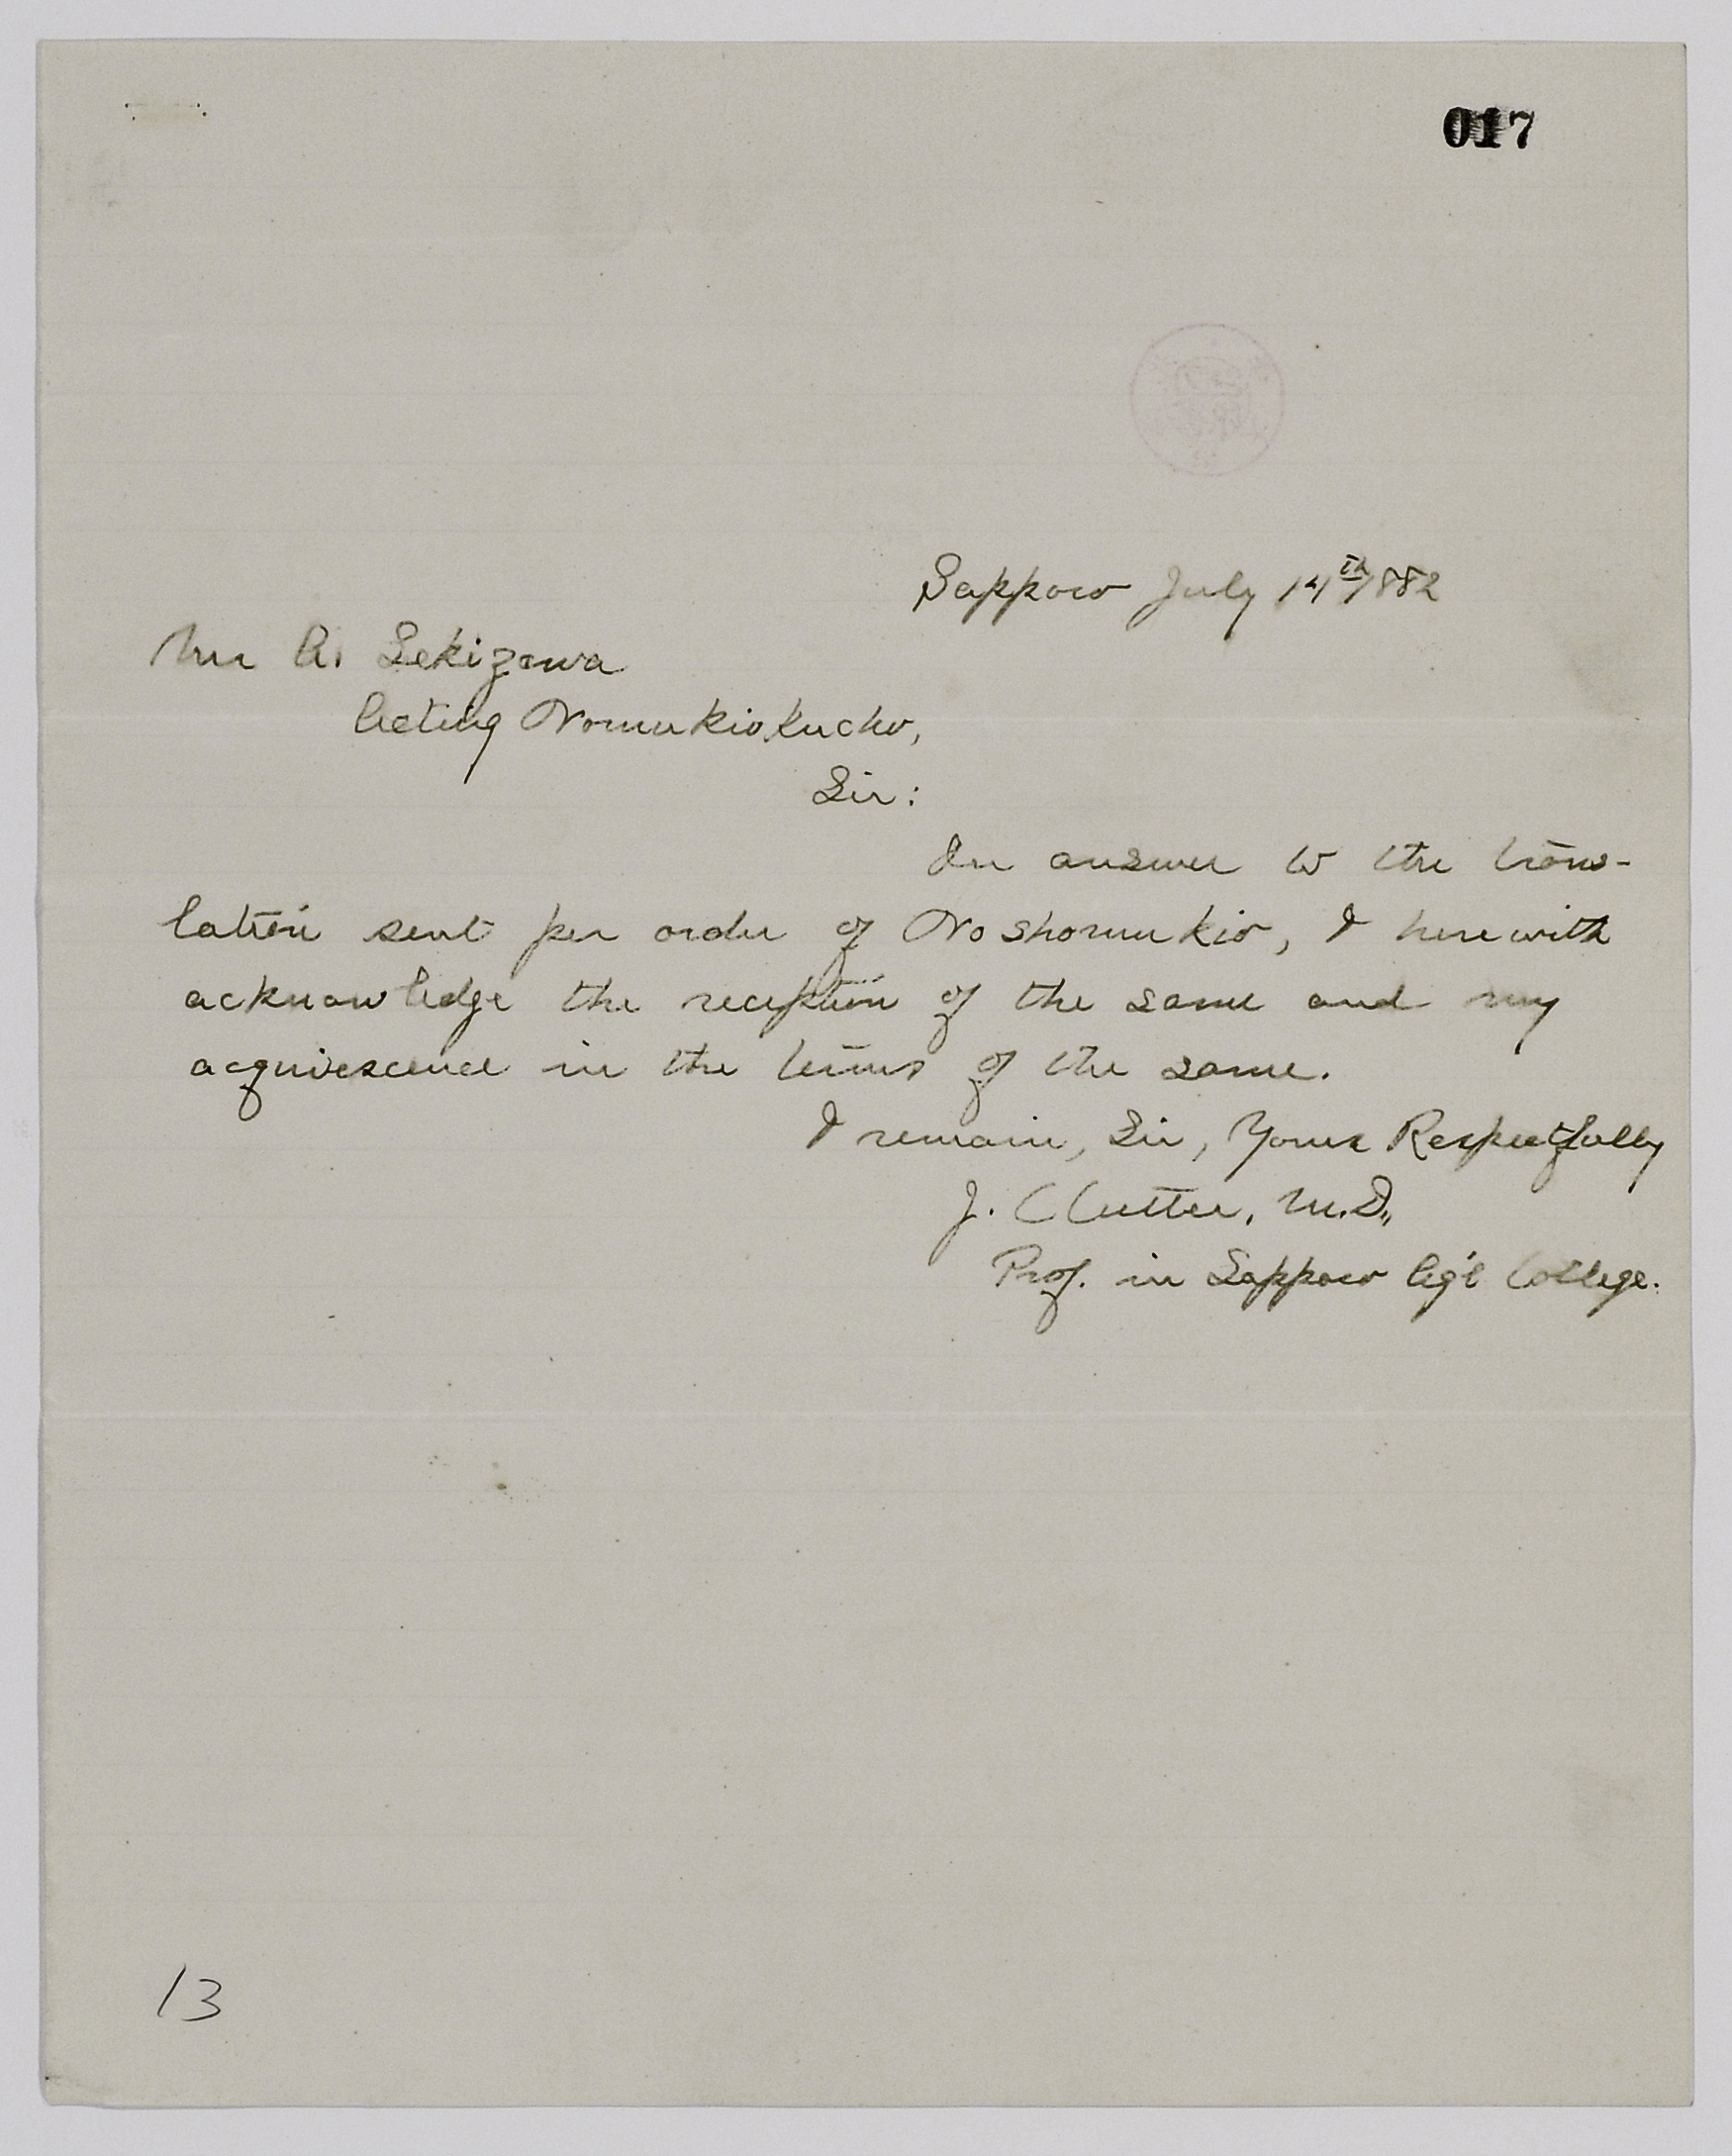 017
Sapporo July 14th/1882
Mr A. Sekizawa
Acting Nomukiokucho,
Sir:
In answer to the trans-
lation sent per order of Noshomukio, I herewith
acknowledge the reception of the same and my
acquiescence in the terms of the same.
I remain, Sir, Yours Respectfully
J. C Cutter, M.D.,
Prof. in Sapporo Ag'l College.
13